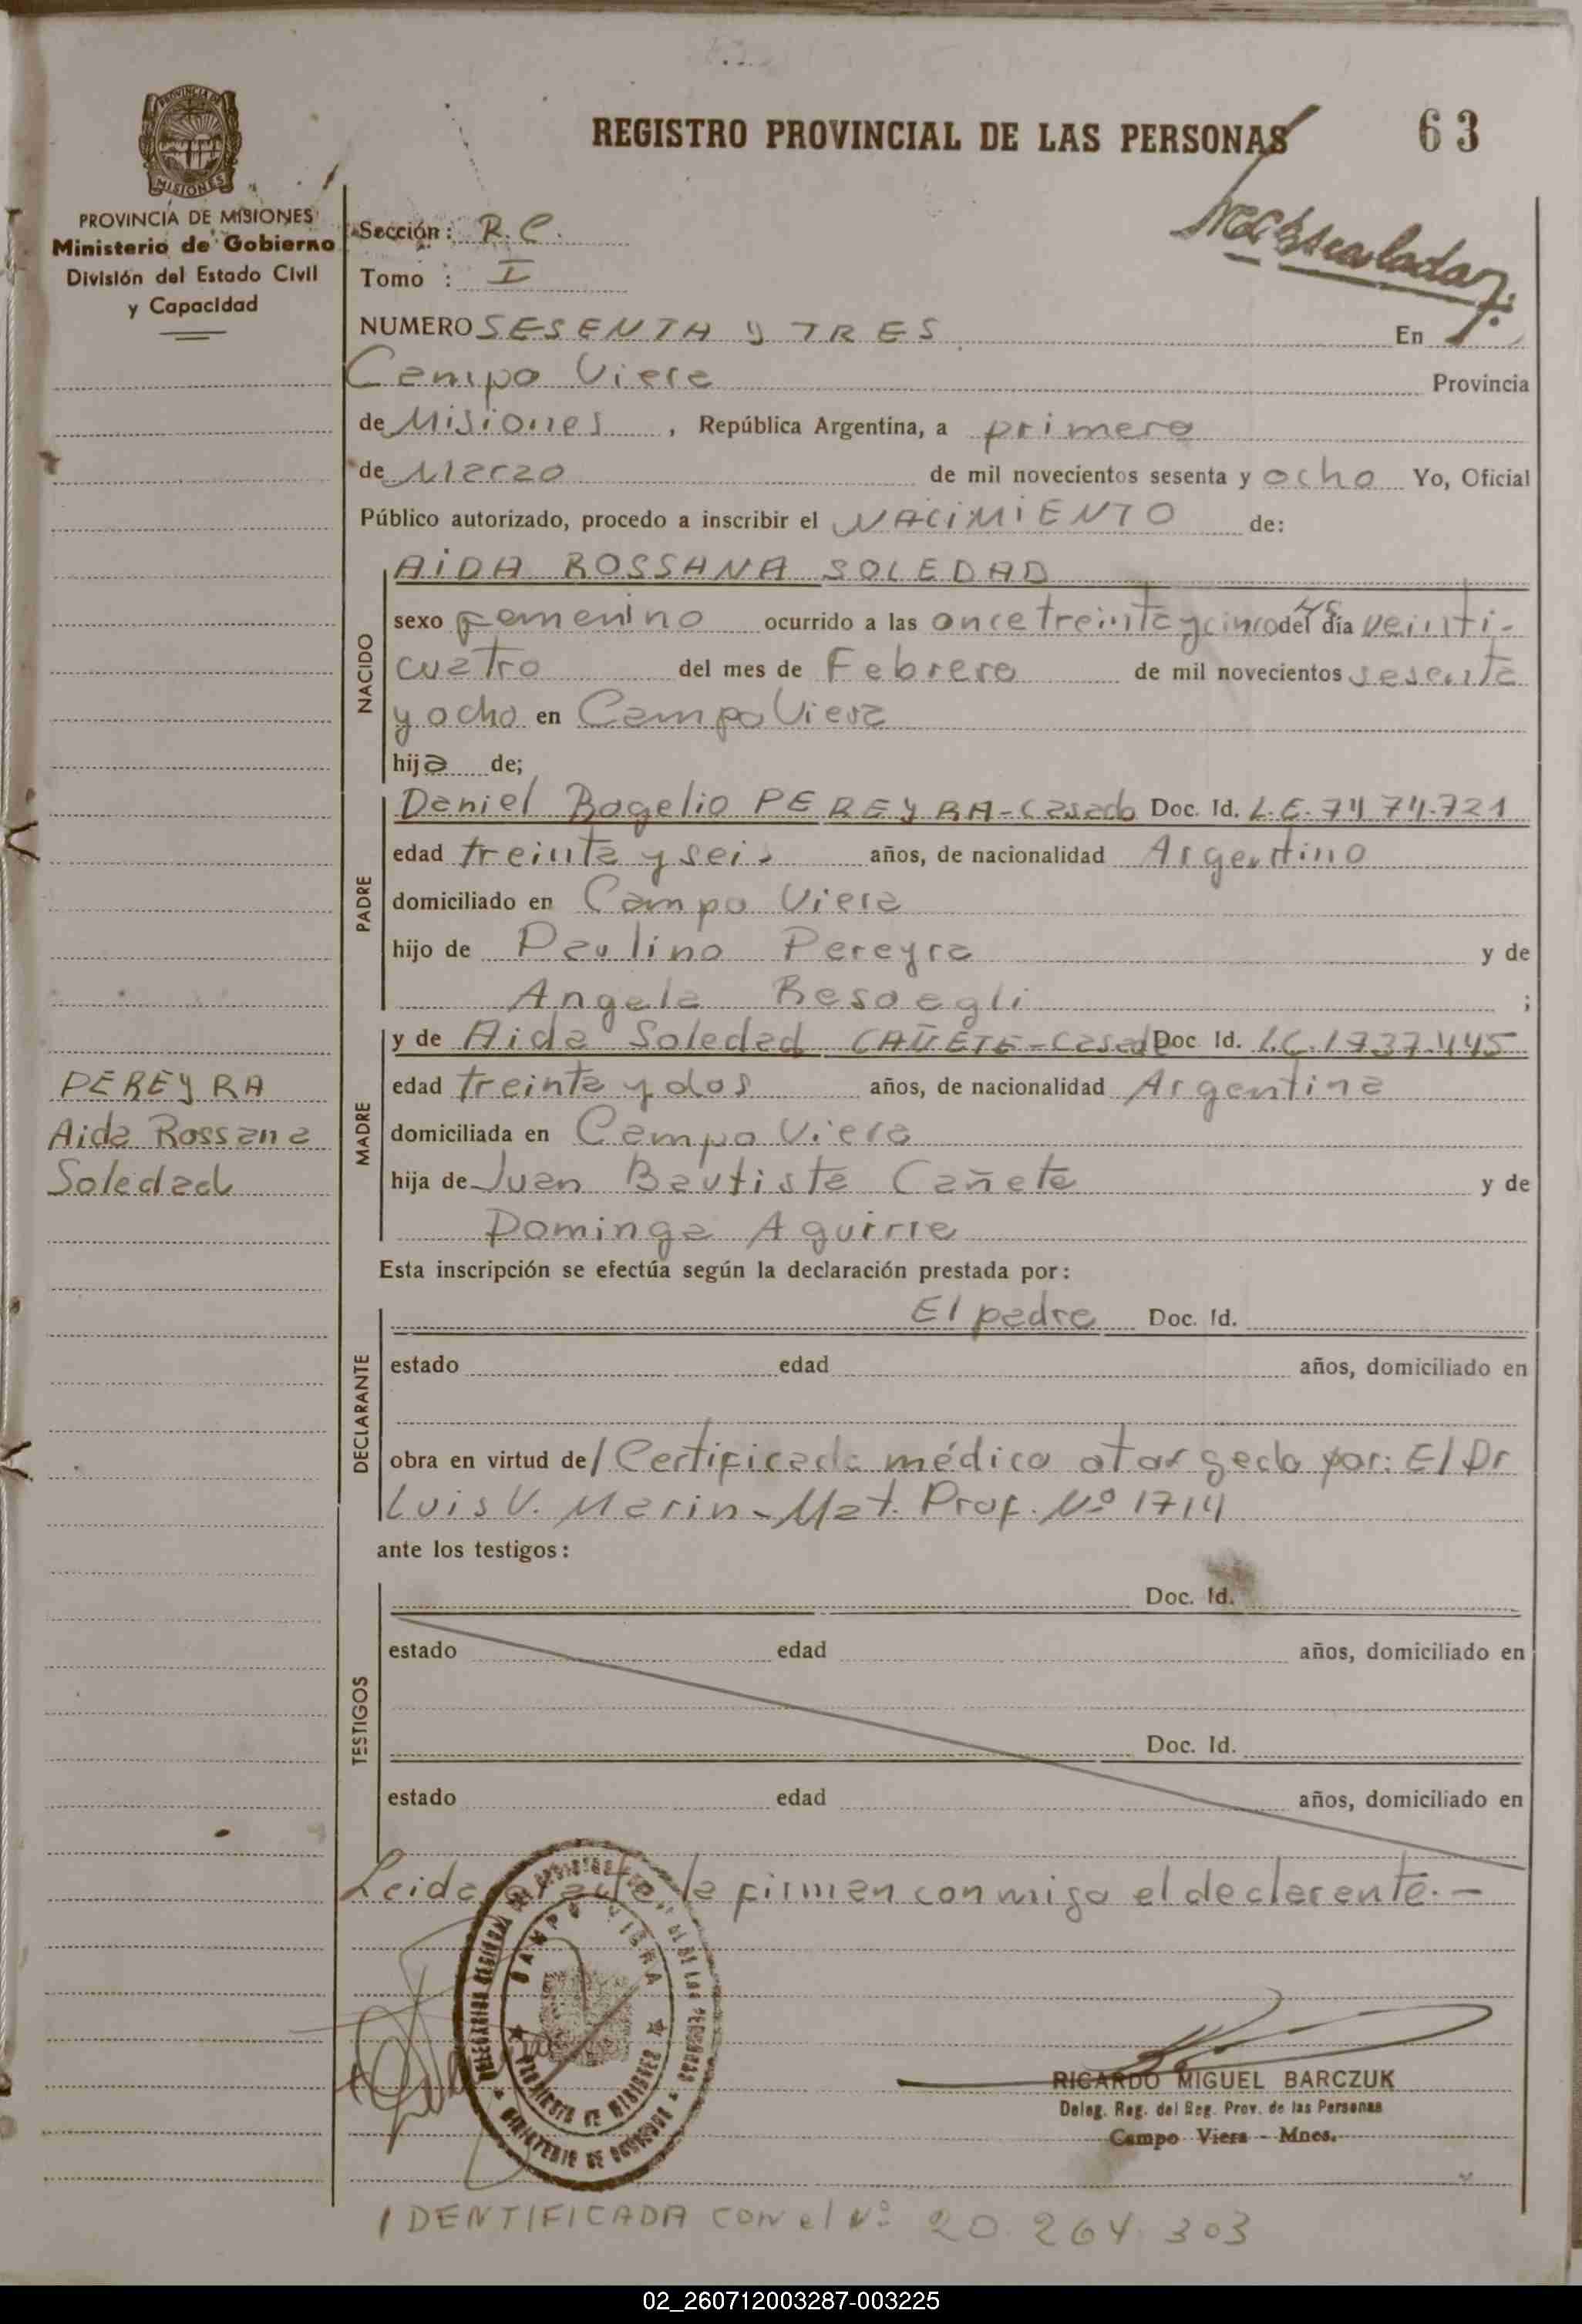 REGISTRO PROVINCIAL DE LAS PERSONAS
63
PROVINCIA DE MISIONES
PROVINCIA DE MISIONES
Ministerio de Gobierno
División del Estado Civil
y Capacidad
Sección: R.C.
Tomo : I
NUMERO SESENTA y TRES En
Campo Viera Provincia
de Misiones, República Argentina, a primero
de Marzo de mil novecientos sesenta y ocho Yo, Oficial
Público autorizado, procedo a inscribir el NACIMIENTO de:
NACIDO
AIDA ROSSANA SOLEDAD
sexo femenino ocurrido a las once treinta y cinco hs del día veinti-
cuatro del mes de Febrero de mil novecientos sesenta
y ocho en Campo Viera
hija de;
PADRE
Daniel Rogelio PEREYRA-Casado Doc. Id. L.E. 7474.721
edad treinta y seis años, de nacionalidad Argentino
domiciliado en Campo Viera
hijo de Paulino Pereyra y de
Angela ;
MADRE
y de Aida Soledad CAÑETE-Casada Doc Id. L.C. 1737.445
edad treinta y dos años, de nacionalidad Argentina
domiciliada en Campo Viera
hija de Juan Bautista Cañete y de
Dominga Aguirre
PEREYRA
Aida Rossana
Soledad
Esta inscripción se efectúa según la declaración prestada por:
DECLARANTE
El padre Doc. Id.
estado edad años, domiciliado en
obra en virtud de/ Certificado médico otorgado por: El Dr
Luis V. Marin-Mat. Prof. Nº 1714
ante los testigos:
TESTIGOS
Doc. Id.
estado edad años, domiciliado en
Doc. Id.
estado edad años, domiciliado en
Leida el acta, la firman conmigo el declarante.-
CAMPO VIERA
PROVINCIA DE MISIONES
MINISTERIO DE GOBIERNO
RICARDO MIGUEL BARCZUK
Deleg. Reg. del Reg. Prov. de las Personas
Campo Viera - Mnes.
IDENTIFICADA con el Nº 20.264.303
02_260712003287-003225